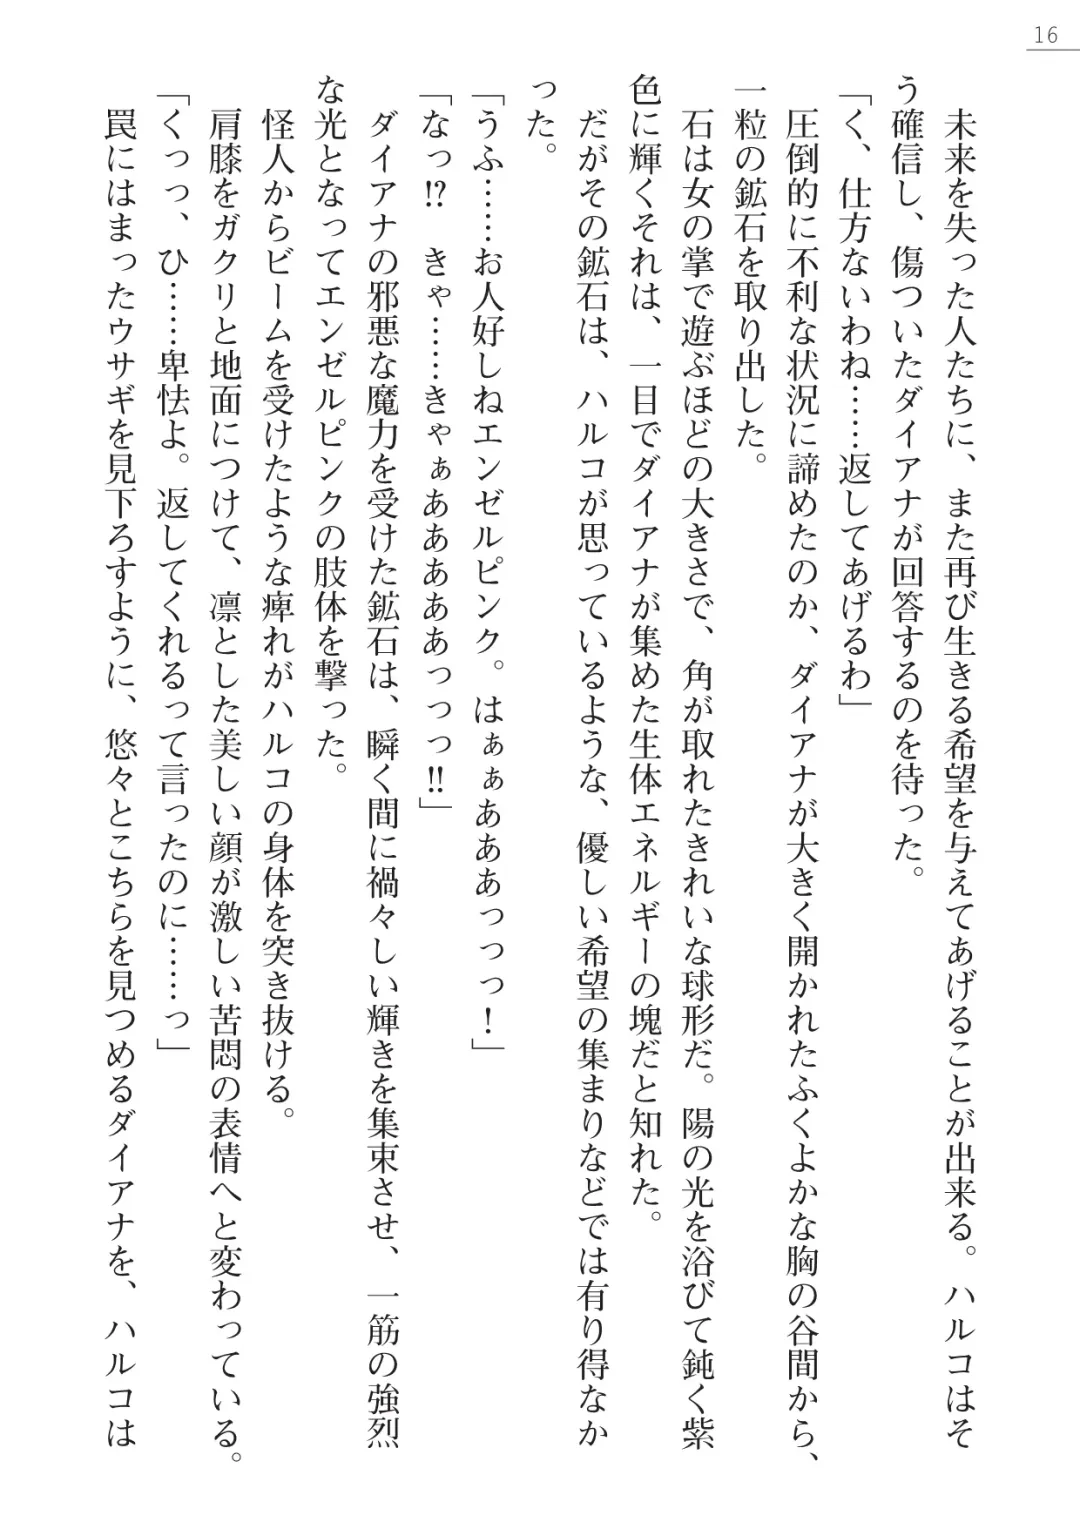 16
　未来を失った人たちに、また再び生きる希望を与えてあげることが出来る。ハルコはそ
う確信し、傷ついたダイアナが回答するのを待った。
「く、仕方ないわね……返してあげるわ」
　圧倒的に不利な状況に諦めたのか、ダイアナが大きく開かれたふくよかな胸の谷間から、
一粒の鉱石を取り出した。
　石は女の掌で遊ぶほどの大きさで、角が取れたきれいな球形だ。陽の光を浴びて鈍く紫
色に輝くそれは、一目でダイアナが集めた生体エネルギーの塊だと知れた。
　だがその鉱石は、ハルコが思っているような、優しい希望の集まりなどでは有り得なか
った。
「うふ……お人好しねエンゼルピンク。はぁぁあああっっっ！」
「なっ⁉　きゃ……きゃぁああああああっっっ‼」
　ダイアナの邪悪な魔力を受けた鉱石は、瞬く間に禍々しい輝きを集束させ、一筋の強烈
な光となってエンゼルピンクの肢体を撃った。
　怪人からビームを受けたような痺れがハルコの身体を突き抜ける。
　肩膝をガクリと地面につけて、凛とした美しい顔が激しい苦悶の表情へと変わっている。
「くっっ、ひ……卑怯よ。返してくれるって言ったのに……っ」
　罠にはまったウサギを見下ろすように、悠々とこちらを見つめるダイアナを、ハルコは